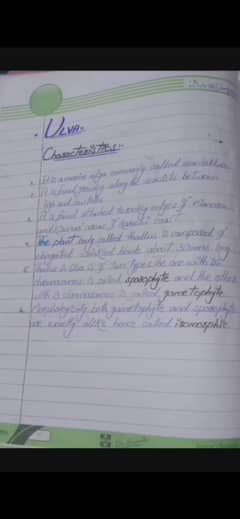 • ULVA:-
Characteristics:-
1. It is a marine algae commonly called sea-lettuce.
2. It is found growing along the sea side between
high and low tides.
3. It is found attached to rocky edges of
and coast.
4. The plant body called thallus is composed of
elongated blade about 30cm long.
5. Thallus in ulva is of two types the one with 26
chromosomes is called sporophyte and the other
with 13 chromosomes is called gametophyte.
6. Morphologically both gametophyte and sporophyte
are exactly alike hence called isomorphic.